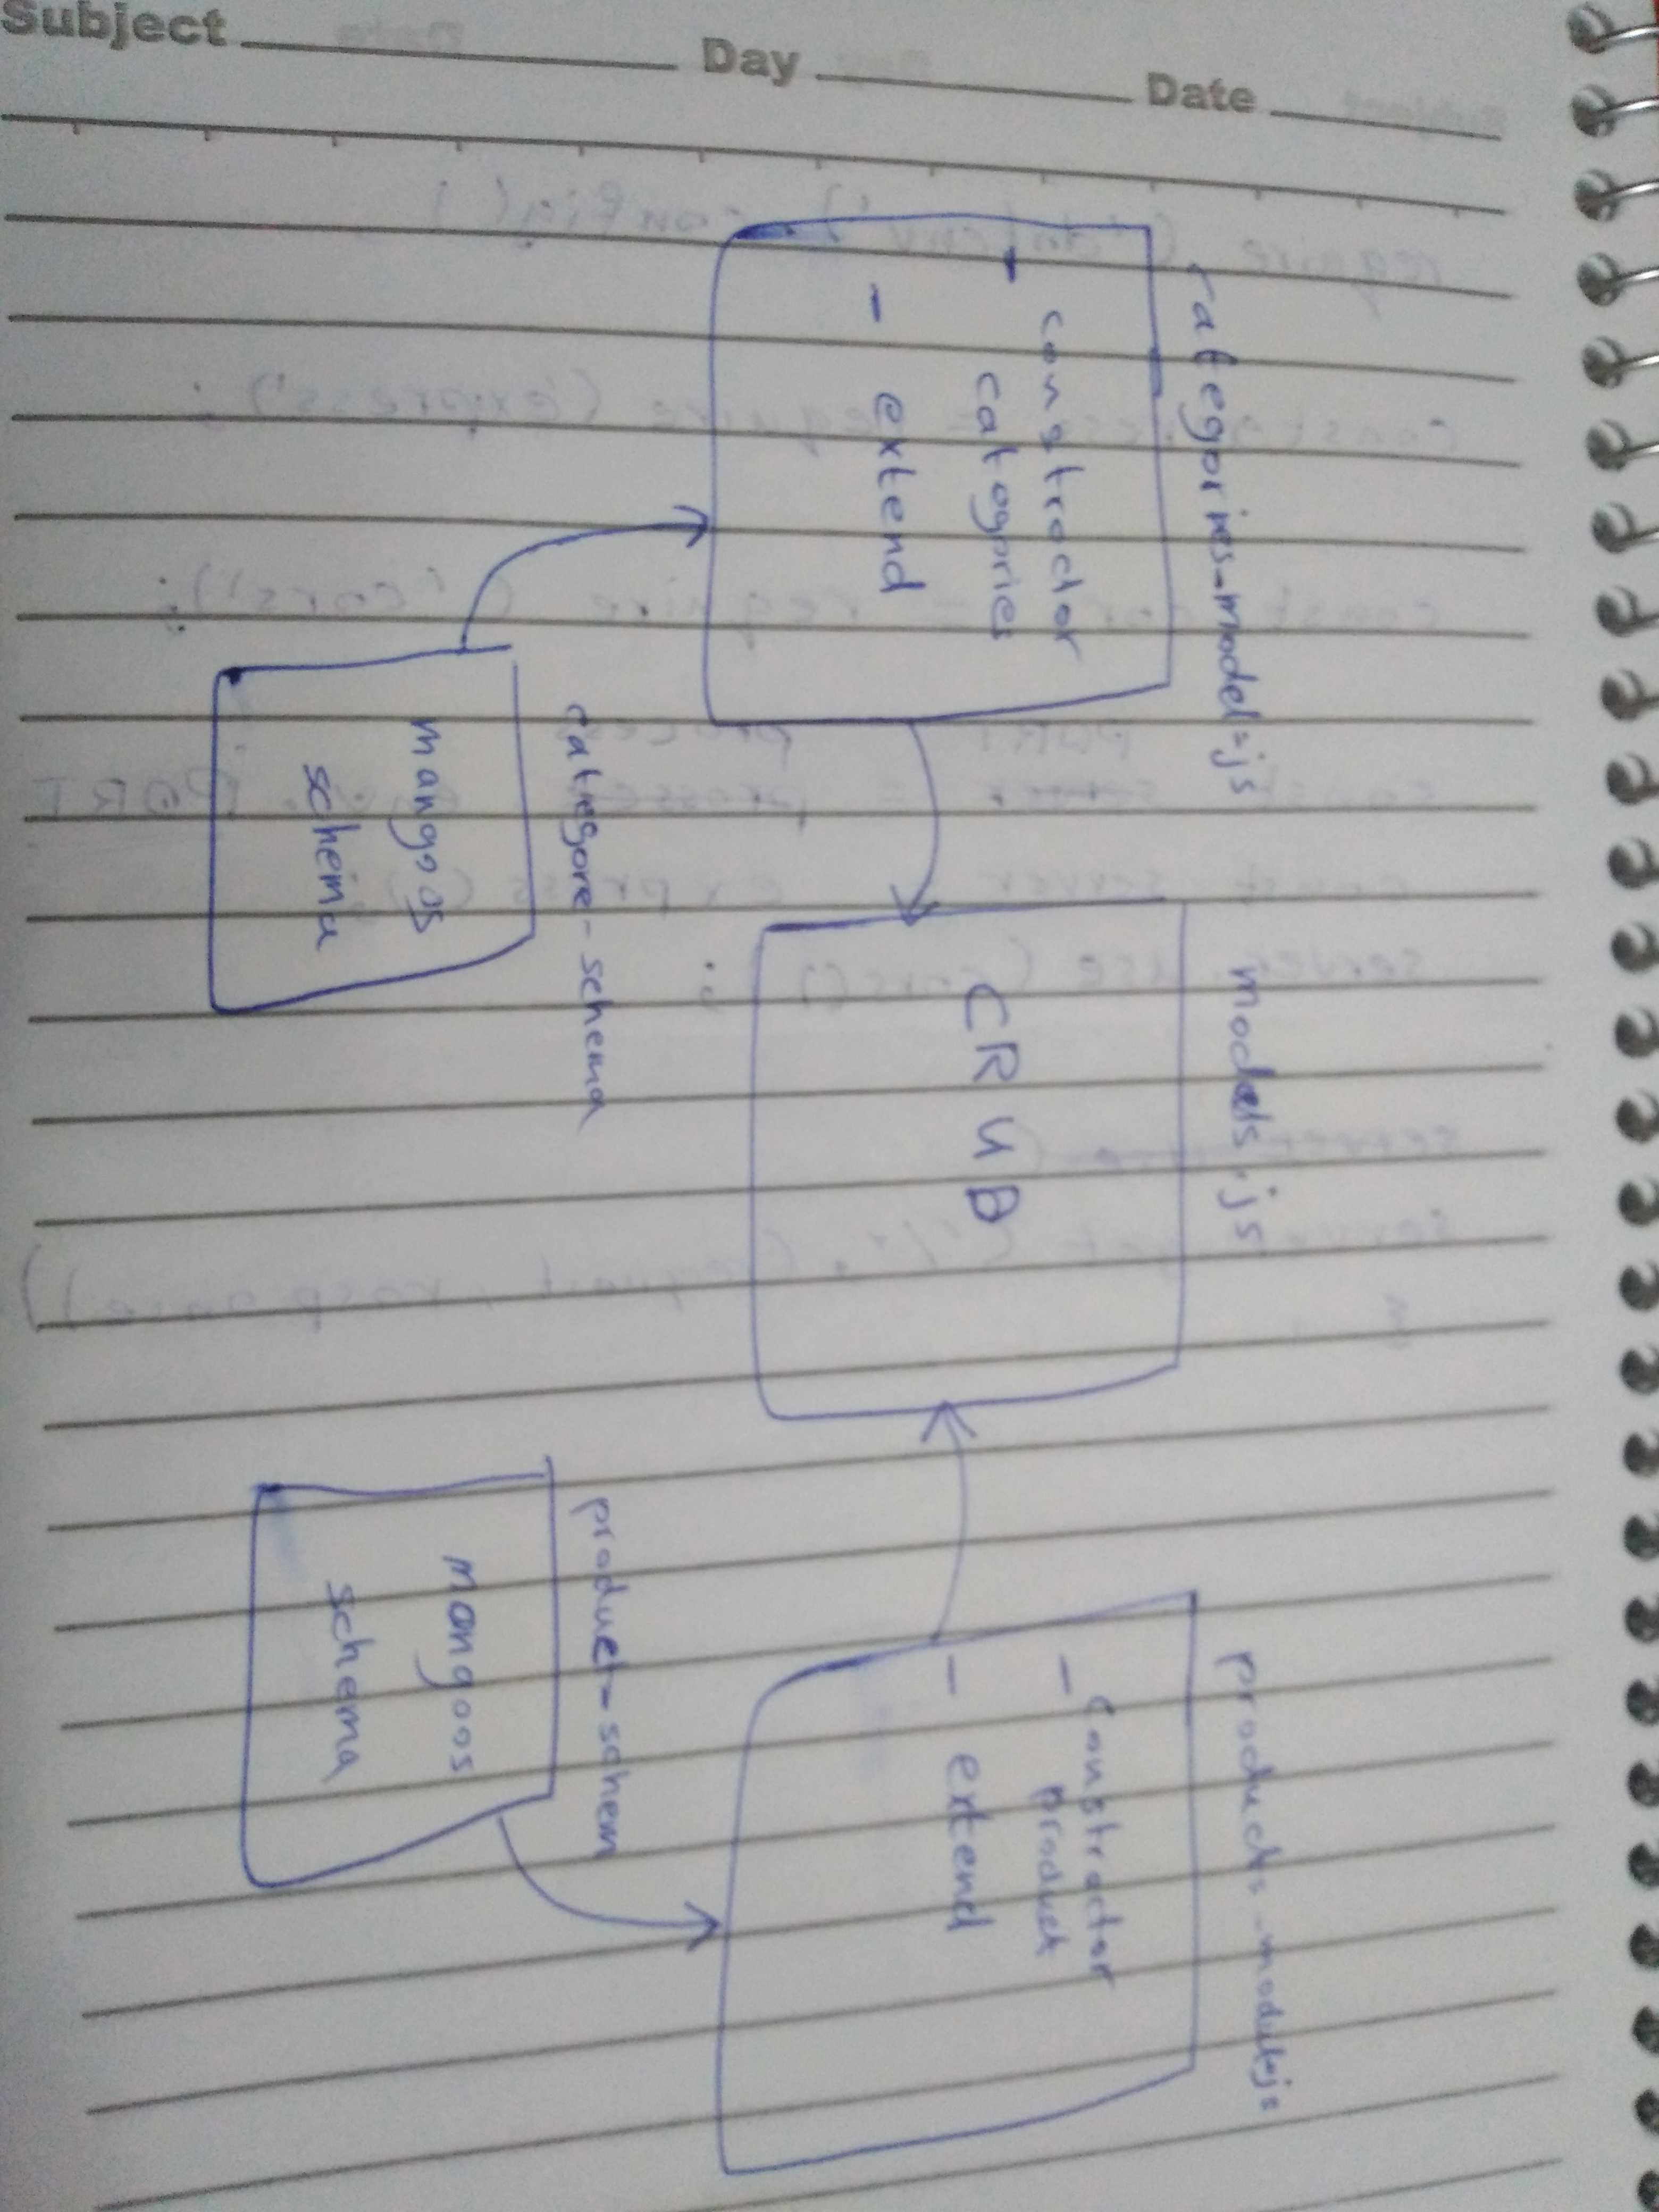 Subject Day Date
categories-model=js
- constroctor
catogories
- extend
models.js
CRUD
products-modulejs
- constractor
product
- extend
categore-schema
mangoos
schema
product-schem
mongoos
schema